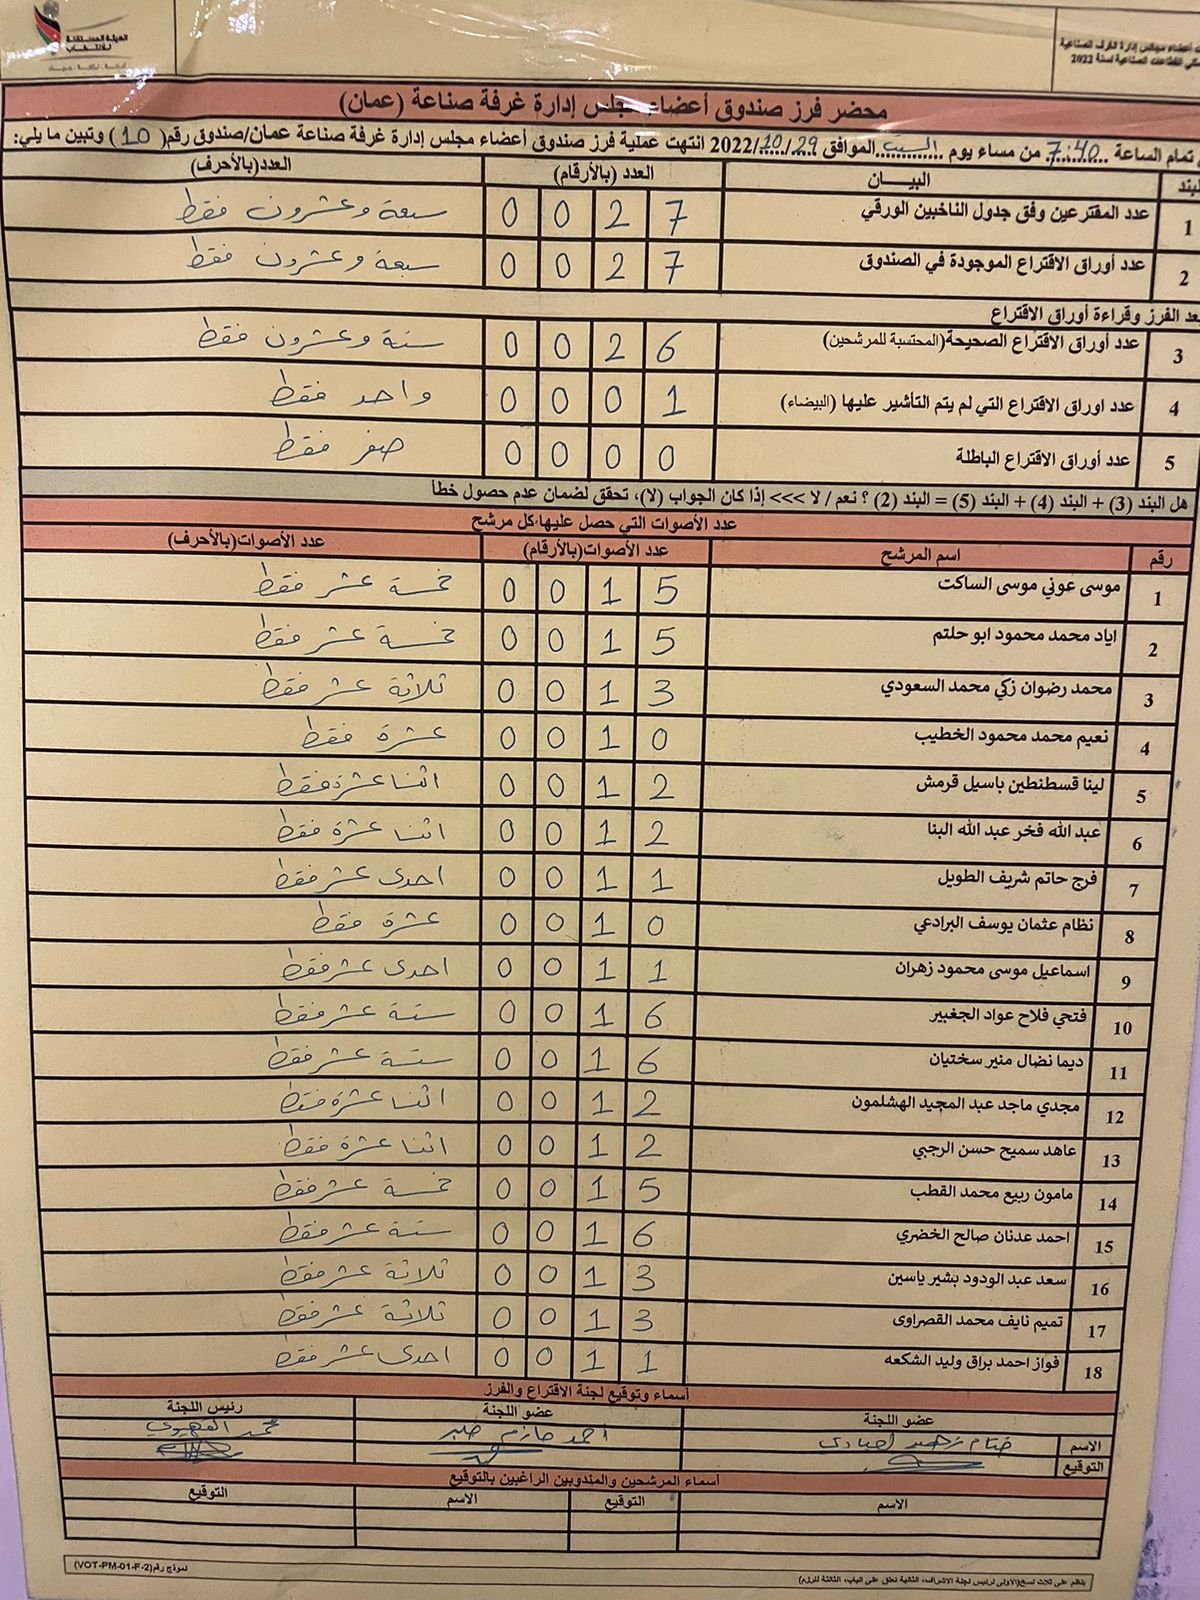 الهيئة المستقلة
للانتخاب
أعضاء مجالس إدارة الغرف الصناعية
القطاعات الصناعية لسنة 2022
محضر فرز صندوق أعضاء مجلس إدارة غرفة صناعة (عمان)
تمام الساعة 7:40 من مساء يوم السبت الموافق 29/10/2022 انتهت عملية فرز صندوق أعضاء مجلس إدارة غرفة صناعة عمان/صندوق رقم( 10 ) وتبين ما يلي:
البند البيـــان العدد (بالأرقام) العدد(بالأحرف)
1 عدد المقترعين وفق جدول الناخبين الورقي 0 0 2 7 سبعة وعشرون فقط
2 عدد أوراق الاقتراع الموجودة في الصندوق 0 0 2 7 سبعة وعشرون فقط
بعد الفرز وقراءة أوراق الاقتراع
3 عدد أوراق الاقتراع الصحيحة(المحتسبة للمرشحين) 0 0 2 6 ستة وعشرون فقط
4 عدد اوراق الاقتراع التي لم يتم التأشير عليها (البيضاء) 0 0 0 1 واحد فقط
5 عدد أوراق الاقتراع الباطلة 0 0 0 0 صفر فقط
هل البند (3) + البند (4) + البند (5) = البند (2) ؟ نعم / لا >>> إذا كان الجواب (لا)، تحقق لضمان عدم حصول خطأ
عدد الأصوات التي حصل عليها كل مرشح
رقم اسم المرشح عدد الأصوات(بالأرقام) عدد الأصوات(بالأحرف)
1 موسى عوني موسى الساكت 0 0 1 5 خمسة عشر فقط
2 اياد محمد محمود ابو حلتم 0 0 1 5 خمسة عشر فقط
3 محمد رضوان زكي محمد السعودي 0 0 1 3 ثلاثة عشر فقط
4 نعيم محمد محمود الخطيب 0 0 1 0 عشرة فقط
5 لينا قسطنطين باسيل قرمش 0 0 1 2 اثنا عشرة فقط
6 عبد الله فخر عبد الله البنا 0 0 1 2 اثنا عشرة فقط
7 فرح حاتم شريف الطويل 0 0 1 1 احدى عشر فقط
8 نظام عثمان يوسف البرادعي 0 0 1 0 عشرة فقط
9 اسماعيل موسى محمود زهران 0 0 1 1 احدى عشر فقط
10 فتحي فلاح عواد الجغبير 0 0 1 6 ستة عشر فقط
11 ديما نضال منير سختيان 0 0 1 6 ستة عشر فقط
12 مجدي ماجد عبد المجيد الهشلمون 0 0 1 2 اثنا عشرة فقط
13 عاهد سميح حسن الرجبي 0 0 1 2 اثنا عشرة فقط
14 مامون ربيع محمد القطب 0 0 1 5 خمسة عشر فقط
15 احمد عدنان صالح الخضري 0 0 1 6 ستة عشر فقط
16 سعد عبد الودود بشير ياسين 0 0 1 3 ثلاثة عشر فقط
17 تميم نايف محمد القصراوى 0 0 1 3 ثلاثة عشر فقط
18 فواز احمد براق وليد الشكعه 0 0 1 1 احدى عشر فقط
أسماء وتوقيع لجنة الاقتراع والفرز
عضو اللجنة عضو اللجنة رئيس اللجنة
الاسم أحمد حازم محمد
التوقيع
أسماء المرشحين والمندوبين الراغبين بالتوقيع
الاسم التوقيع الاسم التوقيع
نموذج رقم(VOT-PM-01-F-2)
ينظم على ثلاث نسخ(الاولى لرئيس لجنة الاشراف، الثانية تعلق على الباب، الثالثة للرزم)